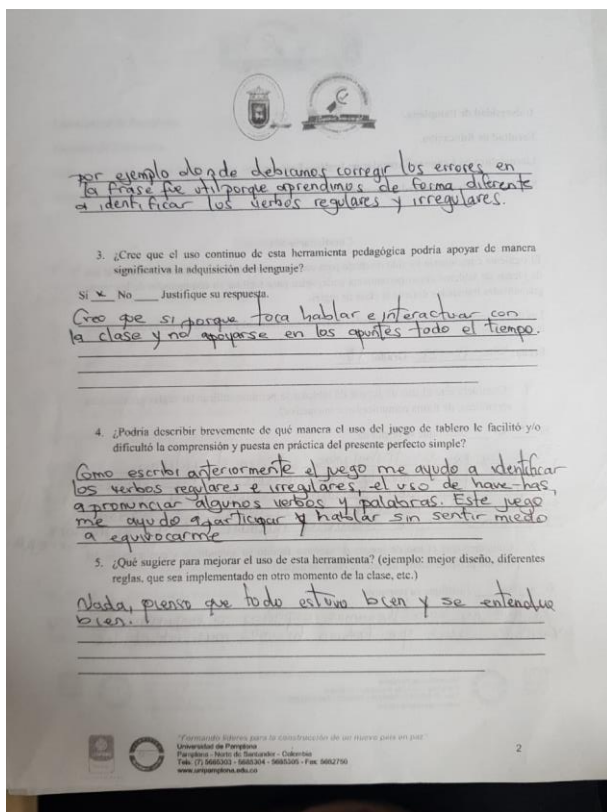 por ejemplo donde debiamos corregir los errores en
la frase fue util porque aprendimos de forma diferente
a identificar los verbos regulares y irregulares.
3. ¿Cree que el uso continuo de esta herramienta pedagógica podría apoyar de manera
significativa la adquisición del lenguaje?
Si x No ____ Justifique su respuesta.
Creo que si porque toca hablar e interactuar con
la clase y no apoyarse en los apuntes todo el tiempo.
4. ¿Podría describir brevemente de qué manera el uso del juego de tablero le facilitó y/o
dificultó la comprensión y puesta en práctica del presente perfecto simple?
Como escribi anteriormente el juego me ayudo a identificar
los verbos regulares e irregulares, el uso de have-has,
a pronunciar algunos verbos y palabras. Este juego
me ayudo a participar y hablar sin sentir miedo
a equivocarme
5. ¿Qué sugiere para mejorar el uso de esta herramienta? (ejemplo: mejor diseño, diferentes
reglas, que sea implementado en otro momento de la clase, etc.)
Nada, pienso que todo estuvo bien y se
bien.
"Formando líderes para la construcción de un nuevo país en paz"
Universidad de Pamplona
Pamplona - Norte de Santander - Colombia
Tels: (7) 5685303 - 5685304 - 5685305 - Fax: 5682750
www.unipamplona.edu.co
2